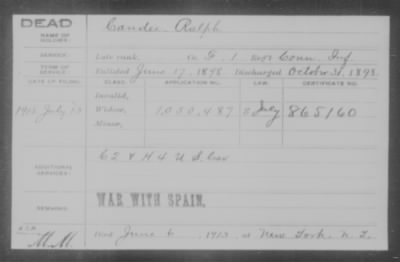 DEAD
NAME OF SOLDIER:
Candee Ralph
SERVICE:
Late rank, Co F. 1 Reg't Conn. Inf.
TERM OF SERVICE:
Enlisted June 17, 1898 Discharged October 31, 1898
DATE OF FILING. CLASS. APPLICATION NO. LAW. CERTIFICATE NO.
Invalid,
1913 July 13 Widow, 1,030,487 July 865160
Minor,
ADDITIONAL SERVICES:
62 & H 4 U.S. Cav
REMARKS:
WAR WITH SPAIN.
Died June 6, 1913, at New York, N.Y.
M.M.